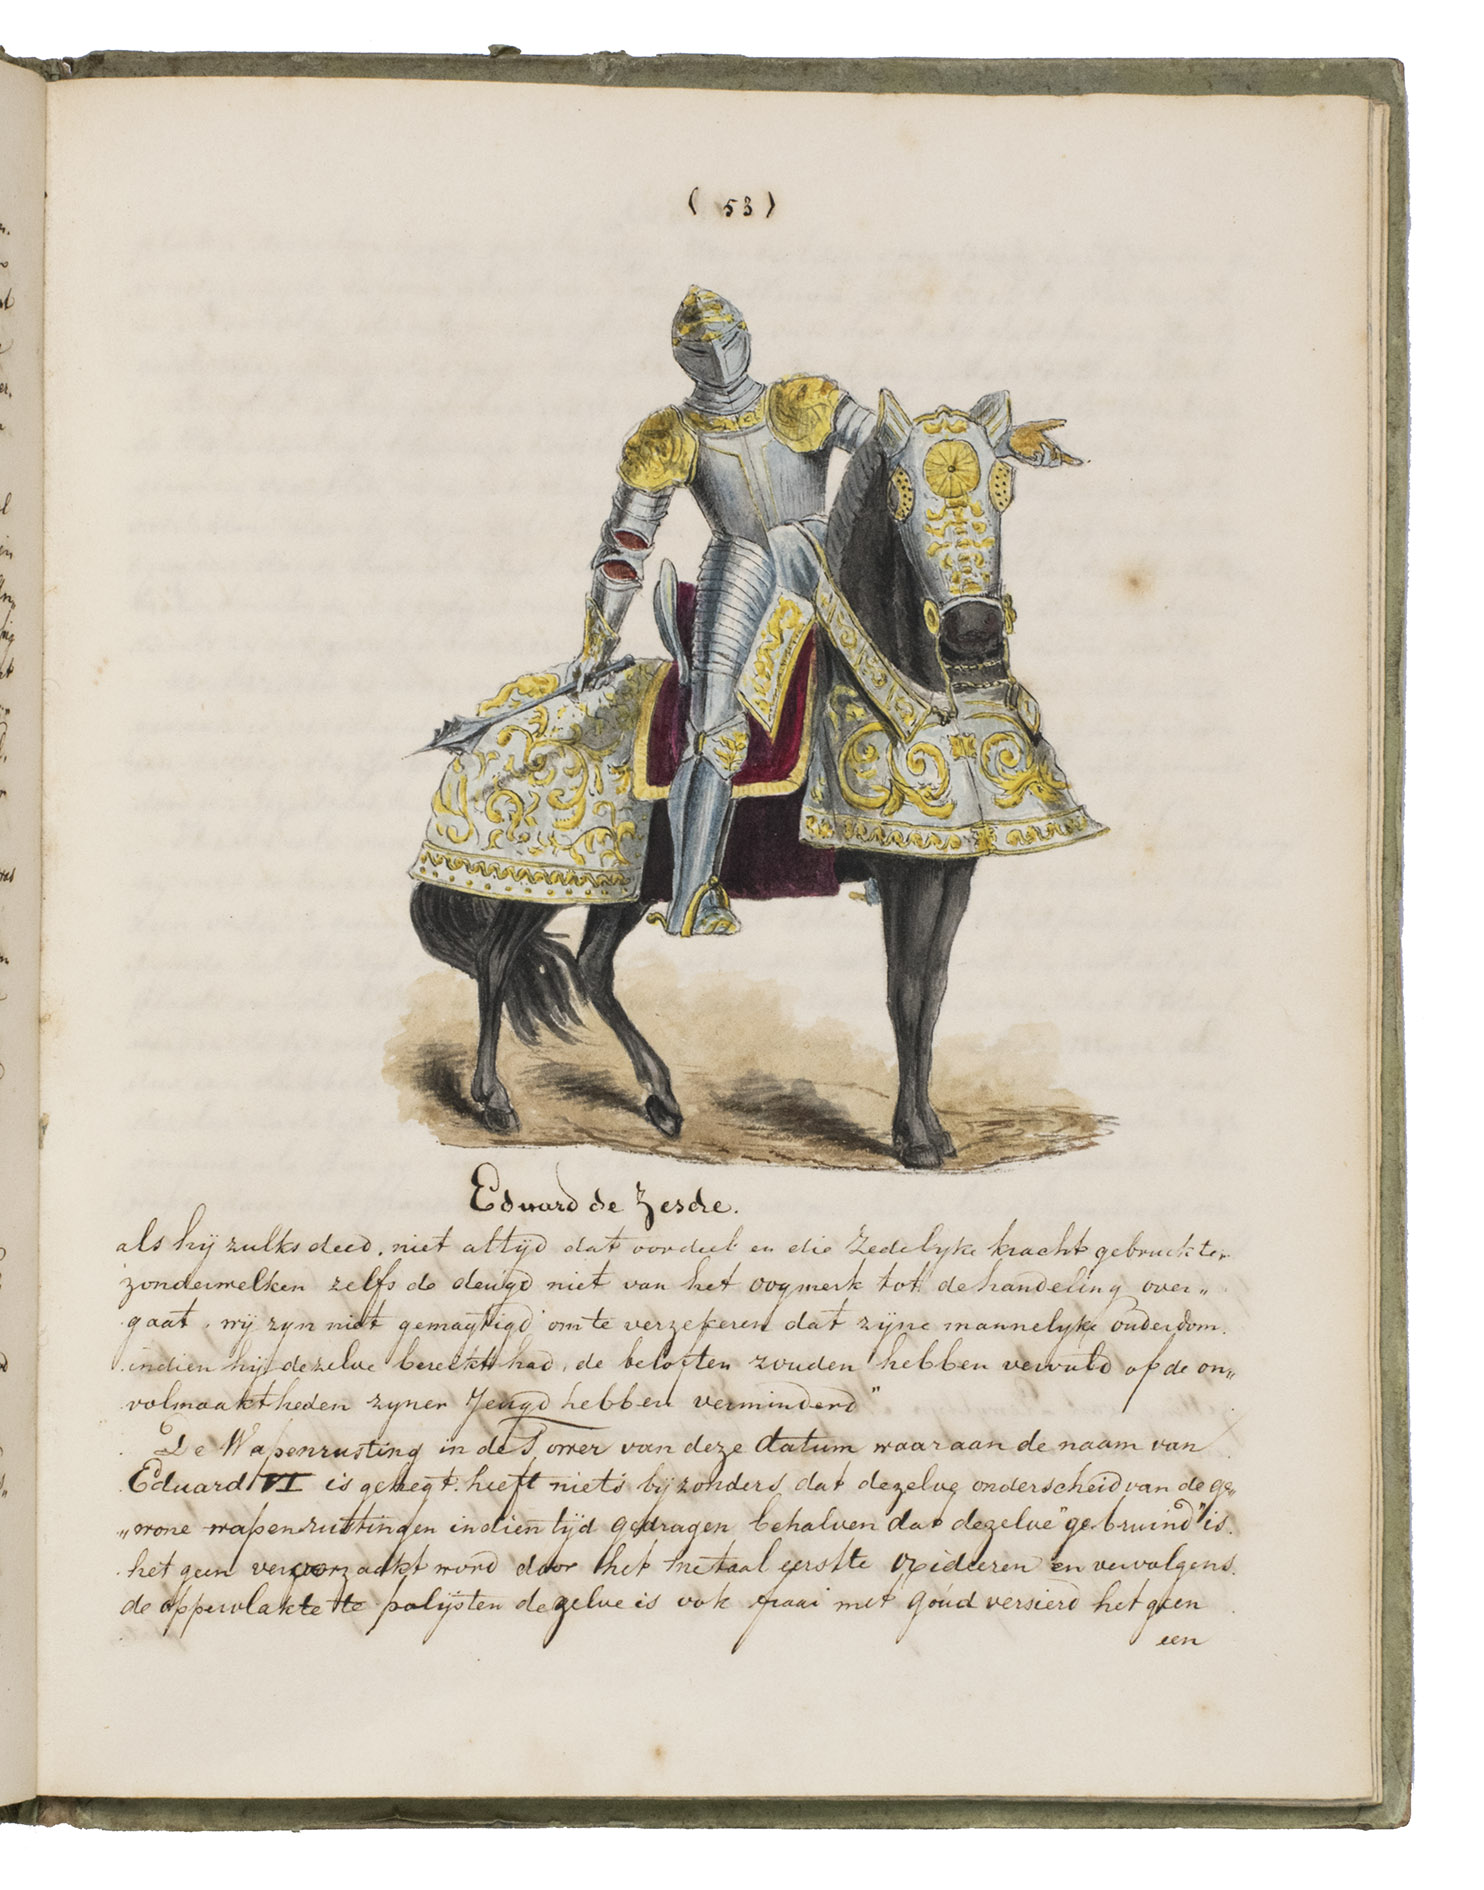 ( 53 )
Eduard de Zesde.
als hij zulks deed, niet altijd dat oordeel en die Zedelyke kracht gebruikte,
zonderwelken zelfs de deugd niet van het oogmerk tot de handeling over„
gaat. wij zyn niet gemagtigd om te verzekeren dat zijne mannelyke ouderdom.
indien hij dezelve bereikt had, de beloften zouden hebben vervuld of de on„
volmaaktheden zyner Jeugd hebben verminderd"
De Wapenrusting in de Tower van deze datum waaraan de naam van
Eduard VI is gehegt heeft niets byzonders dat dezelve onderscheid van de ge„
„wone wapenrustingen in dien tijd gedragen behalven dat dezelve "gebruind" is.
het geen veroorzaakt word door het metaal eerstte oxideeren en vervolgens
de oppervlakte te polijsten dezelve is ook fraai met goud versierd het geen
een